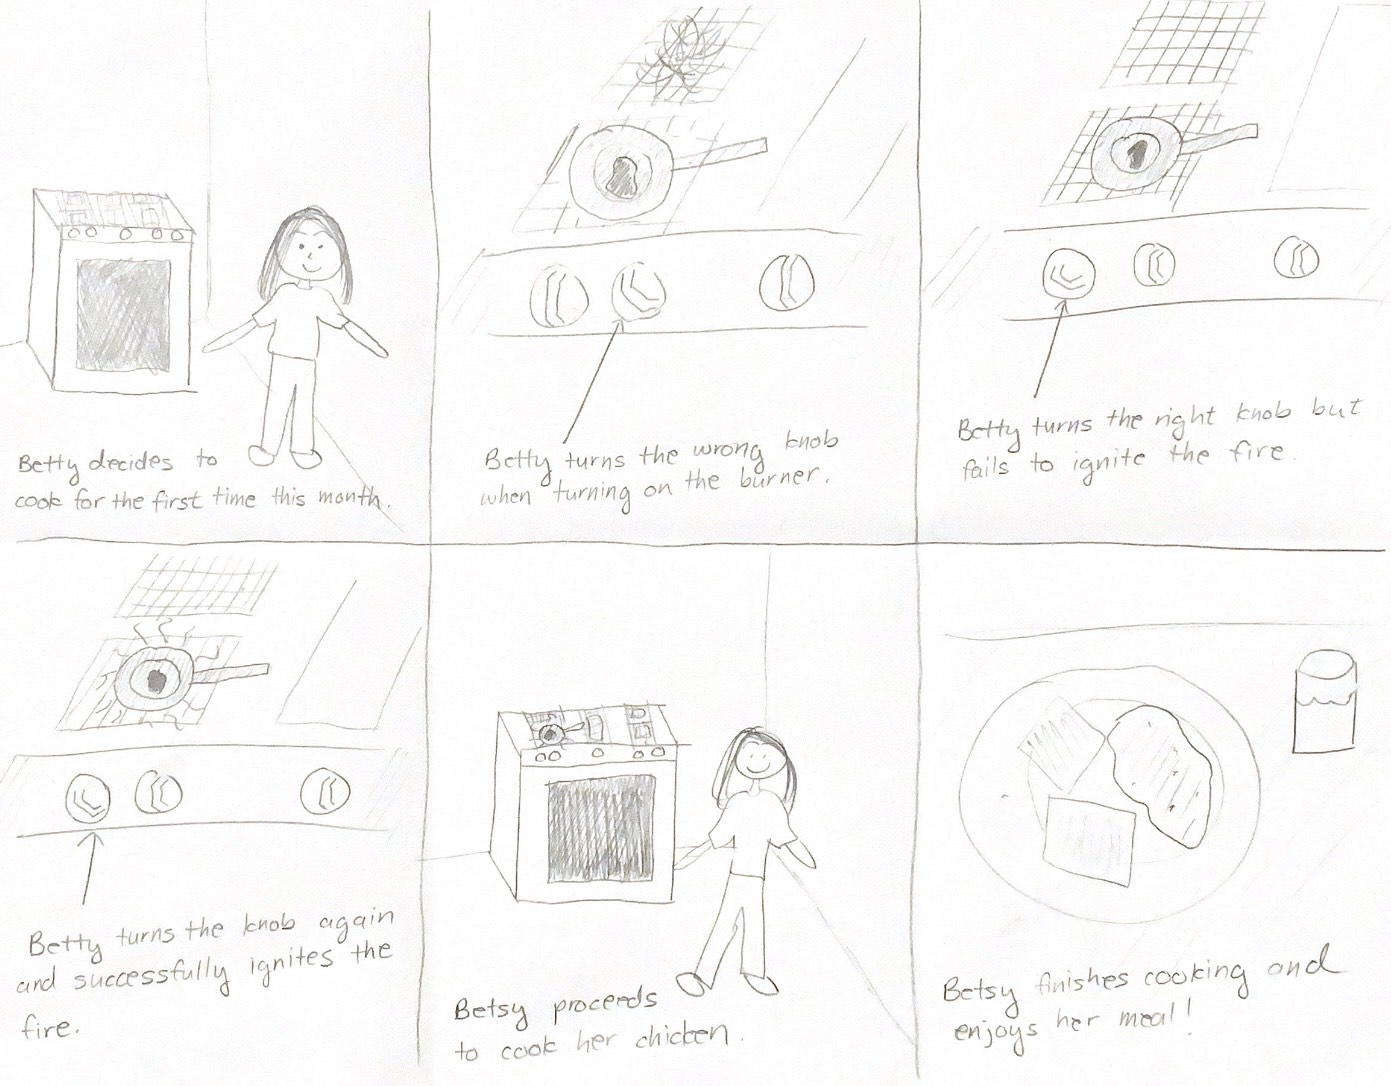 Betty decides to
cook for the first time this month.
Betty turns the wrong knob
when turning on the burner.
Betty turns the right knob but
fails to ignite the fire.
Betty turns the knob again
and successfully ignites the
fire.
Betsy proceeds
to cook her chicken.
Betsy finishes cooking and
enjoys her meal!